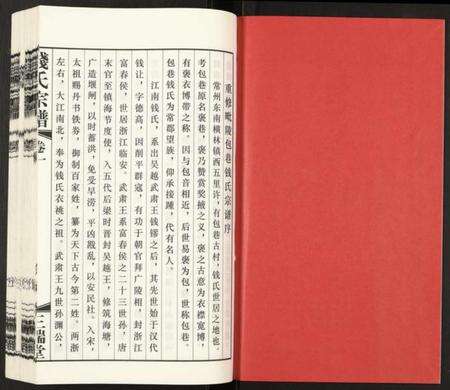 重修毗陵包巷钱氏宗谱序
常州东南横林镇西五里许，有包巷古村，钱氏世居之地也。
考包巷原名褒巷，褒乃赞赏奖掖之义，褒之古意为衣襟宽博，
有褒衣博带之称。因与包音相近，后世易褒为包，世称包巷。
包巷钱氏为常郡望族，仰承接踵，代有名人。
江南钱氏，系出吴越武肃王钱镠之后，其先世始于汉代
钱让，字德高，因削平群寇，有功于朝官拜广陵相，封浙江
富春侯，世居浙江临安。武肃王系富春侯之二十三世孙，唐
末官至镇海节度使，入五代后梁时晋封吴越王，修筑海塘，
广造堰闸，以时蓄洪，免受旱涝，平凶戡乱，以安民社。入宋，
太祖赐丹书铁券，御制百家姓，纂为天下古今第二姓。两浙
左右，大江南北，奉为钱氏衣祧之祖。武肃王九世孙渊公，
錢氏宗譜
卷一